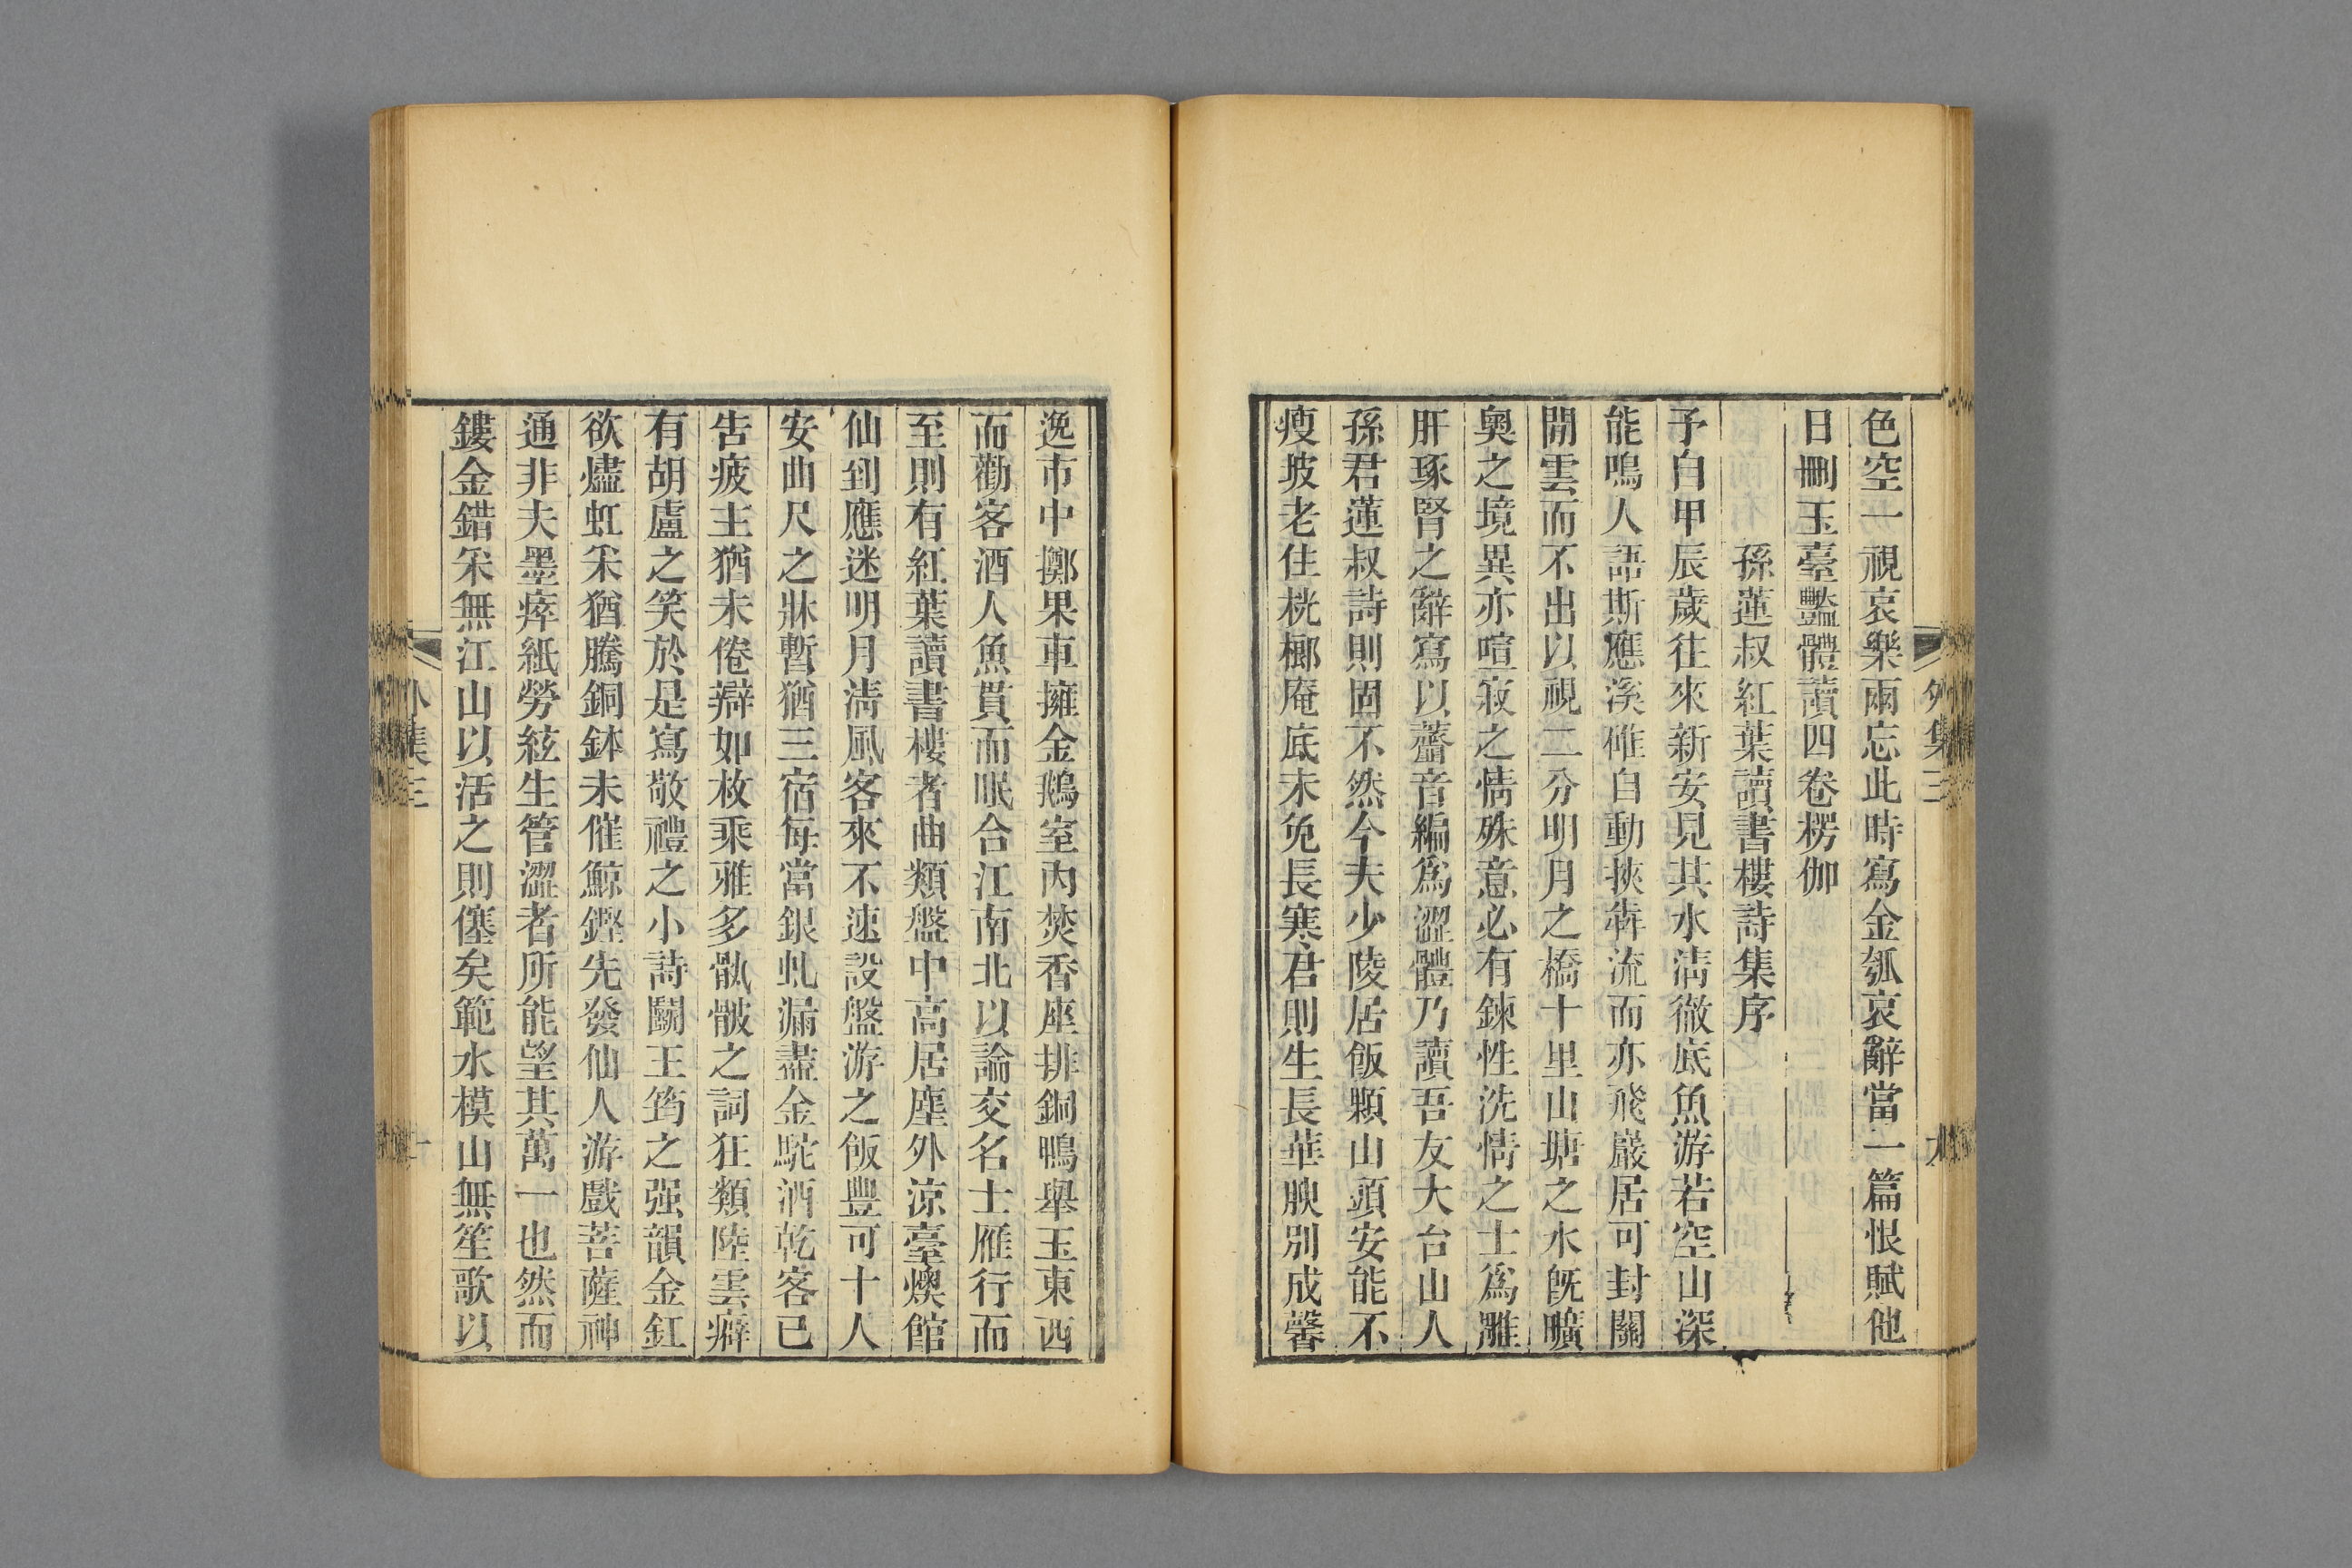 色空一視哀樂兩忘此時寫金瓠哀辭當一篇恨賦他
日刪玉臺豔體讀四卷楞伽
孫蓮叔紅葉讀書樓詩集序
予自甲辰歲往來新安見其水淸徹底魚游若空山深
能鳴人語斯應溪碓自動挾犇流而亦飛巖居可封關
開雲而不出以視二分明月之橋十里山塘之水旣曠
奧之境異亦喧寂之情殊意必有鍊性洗情之士爲雕
肝琢腎之辭寫以虀音編爲澀體乃讀吾友大台山人
孫君蓮叔詩則固不然今夫少陵居飯顆山頭安能不
瘦坡老住桄榔庵底未免長寒君則生長華腴別成馨
外集三
九
逸市中擲果車擁金鵝室內焚香座排銅鴨舉玉東西
而勸客酒人魚貫而眠合江南北以論交名士雁行而
至則有紅葉讀書樓者曲類盤中高居塵外涼臺燠館
仙到應迷明月淸風客來不速設盤游之飯豐可十人
安曲尺之牀暫猶三宿每當銀虬漏盡金駝酒乾客已
告疲主猶未倦辯如枚乘雅多骫骳之詞狂類陸雲癖
有胡盧之笑於是寫敬禮之小詩鬭王筠之强韻金釭
欲燼虹采猶騰銅鉢未催鯨鏗先發仙人游戲菩薩神
通非夫墨瘁紙勞絃生管澀者所能望其萬一也然而
鏤金錯采無江山以活之則僿矣範水模山無笙歌以
外集三
十